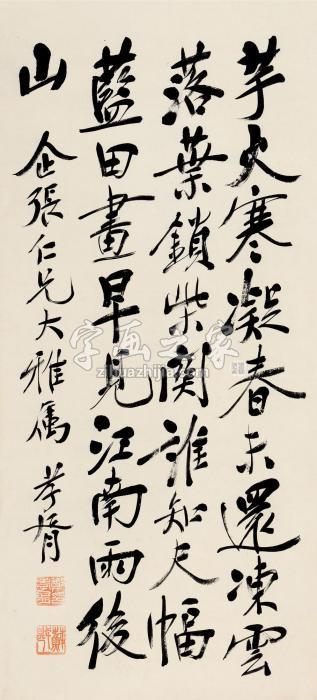 芋火寒凝春未還凍雲
落葉鎖柴関誰知尺幅
藍田畫早見江南雨後
山 企張仁兄大雅属 孝胥
字画之家
zihuazhijia.com